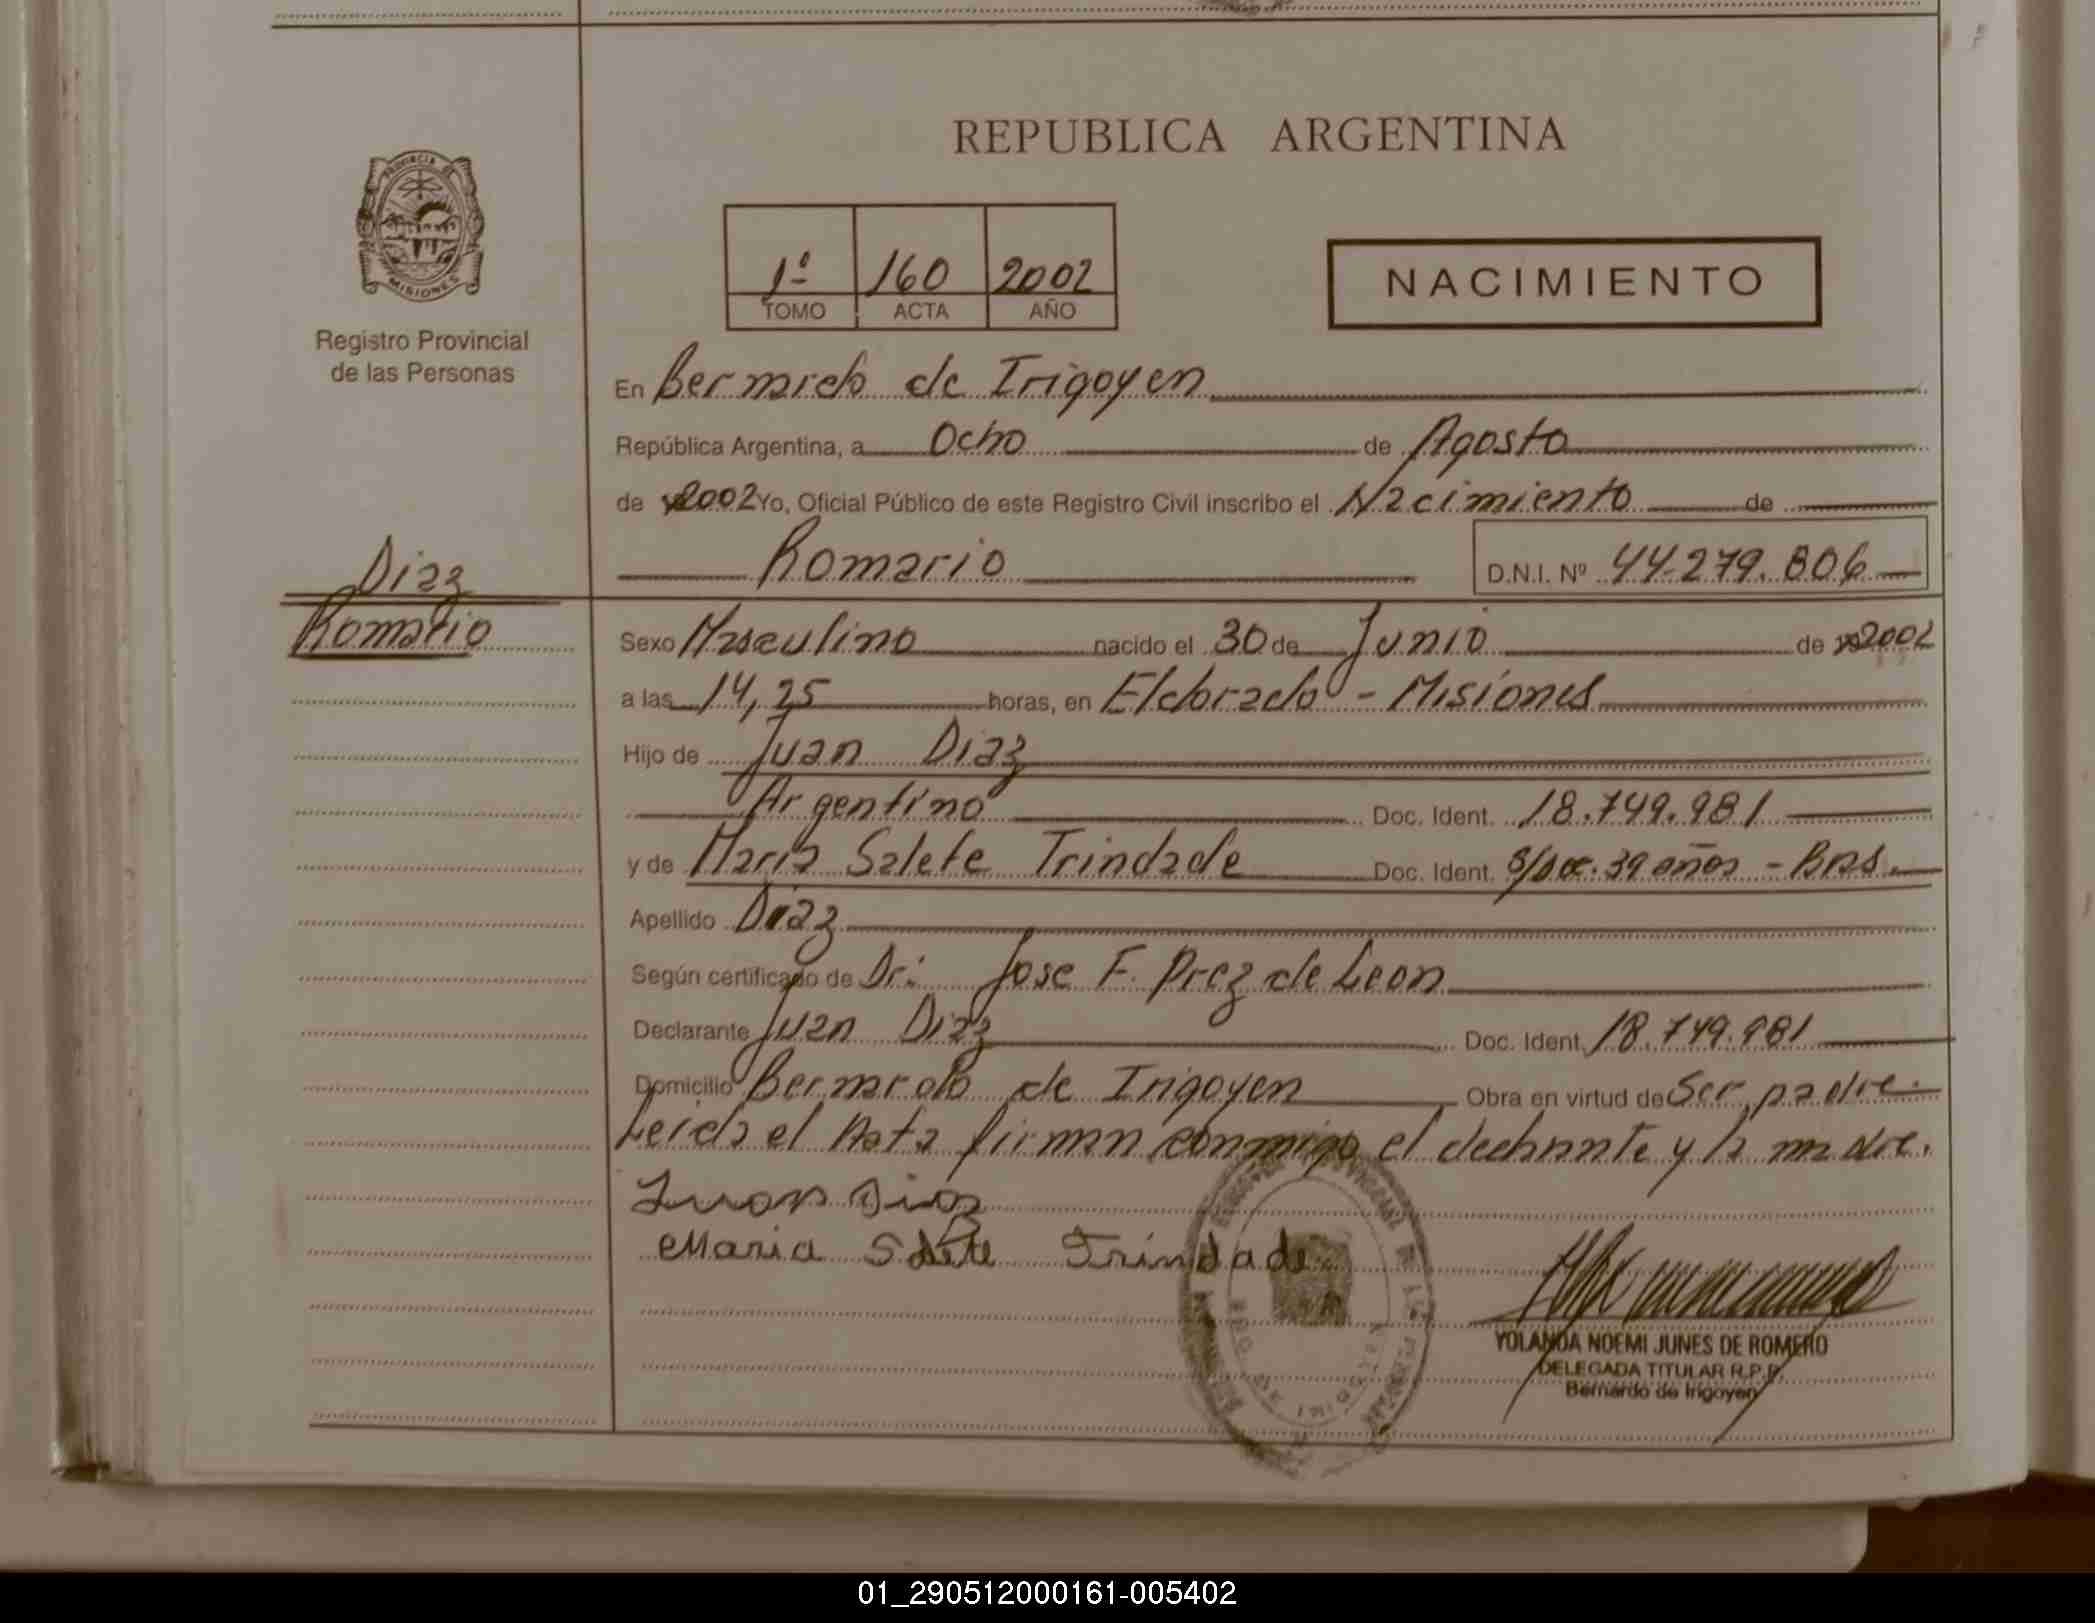 REPUBLICA ARGENTINA
PROVINCIA DE
MISIONES
Registro Provincial
de las Personas
1º 160 2002
TOMO ACTA AÑO
NACIMIENTO
En Bernardo de Irigoyen
República Argentina, a Ocho de Agosto
de 2002 Yo, Oficial Público de este Registro Civil inscribo el Nacimiento de
Romario D.N.I. Nº 44.279.806
Diaz
Romario
Sexo Masculino nacido el 30 de Junio de 2002
a las 14,25 horas, en Eldorado - Misiones
Hijo de Juan Diaz
Argentino Doc. Ident. 18.749.981
y de Maria Salete Trindade Doc. Ident. S/Doc. 39 años - Bras.
Apellido Diaz
Según certificado de Dr: Jose F. Prez de Leon
Declarante Juan Diaz Doc. Ident. 18.749.981
Domicilio Bernardo de Irigoyen Obra en virtud de Ser padre.
Leida el Acta firman conmigo el declarante y la madre.
Juan Diaz
Maria Salete Trindade
YOLANDA NOEMI JUNES DE ROMERO
DELEGADA TITULAR R.P.P.
Bernardo de Irigoyen
01_290512000161-005402